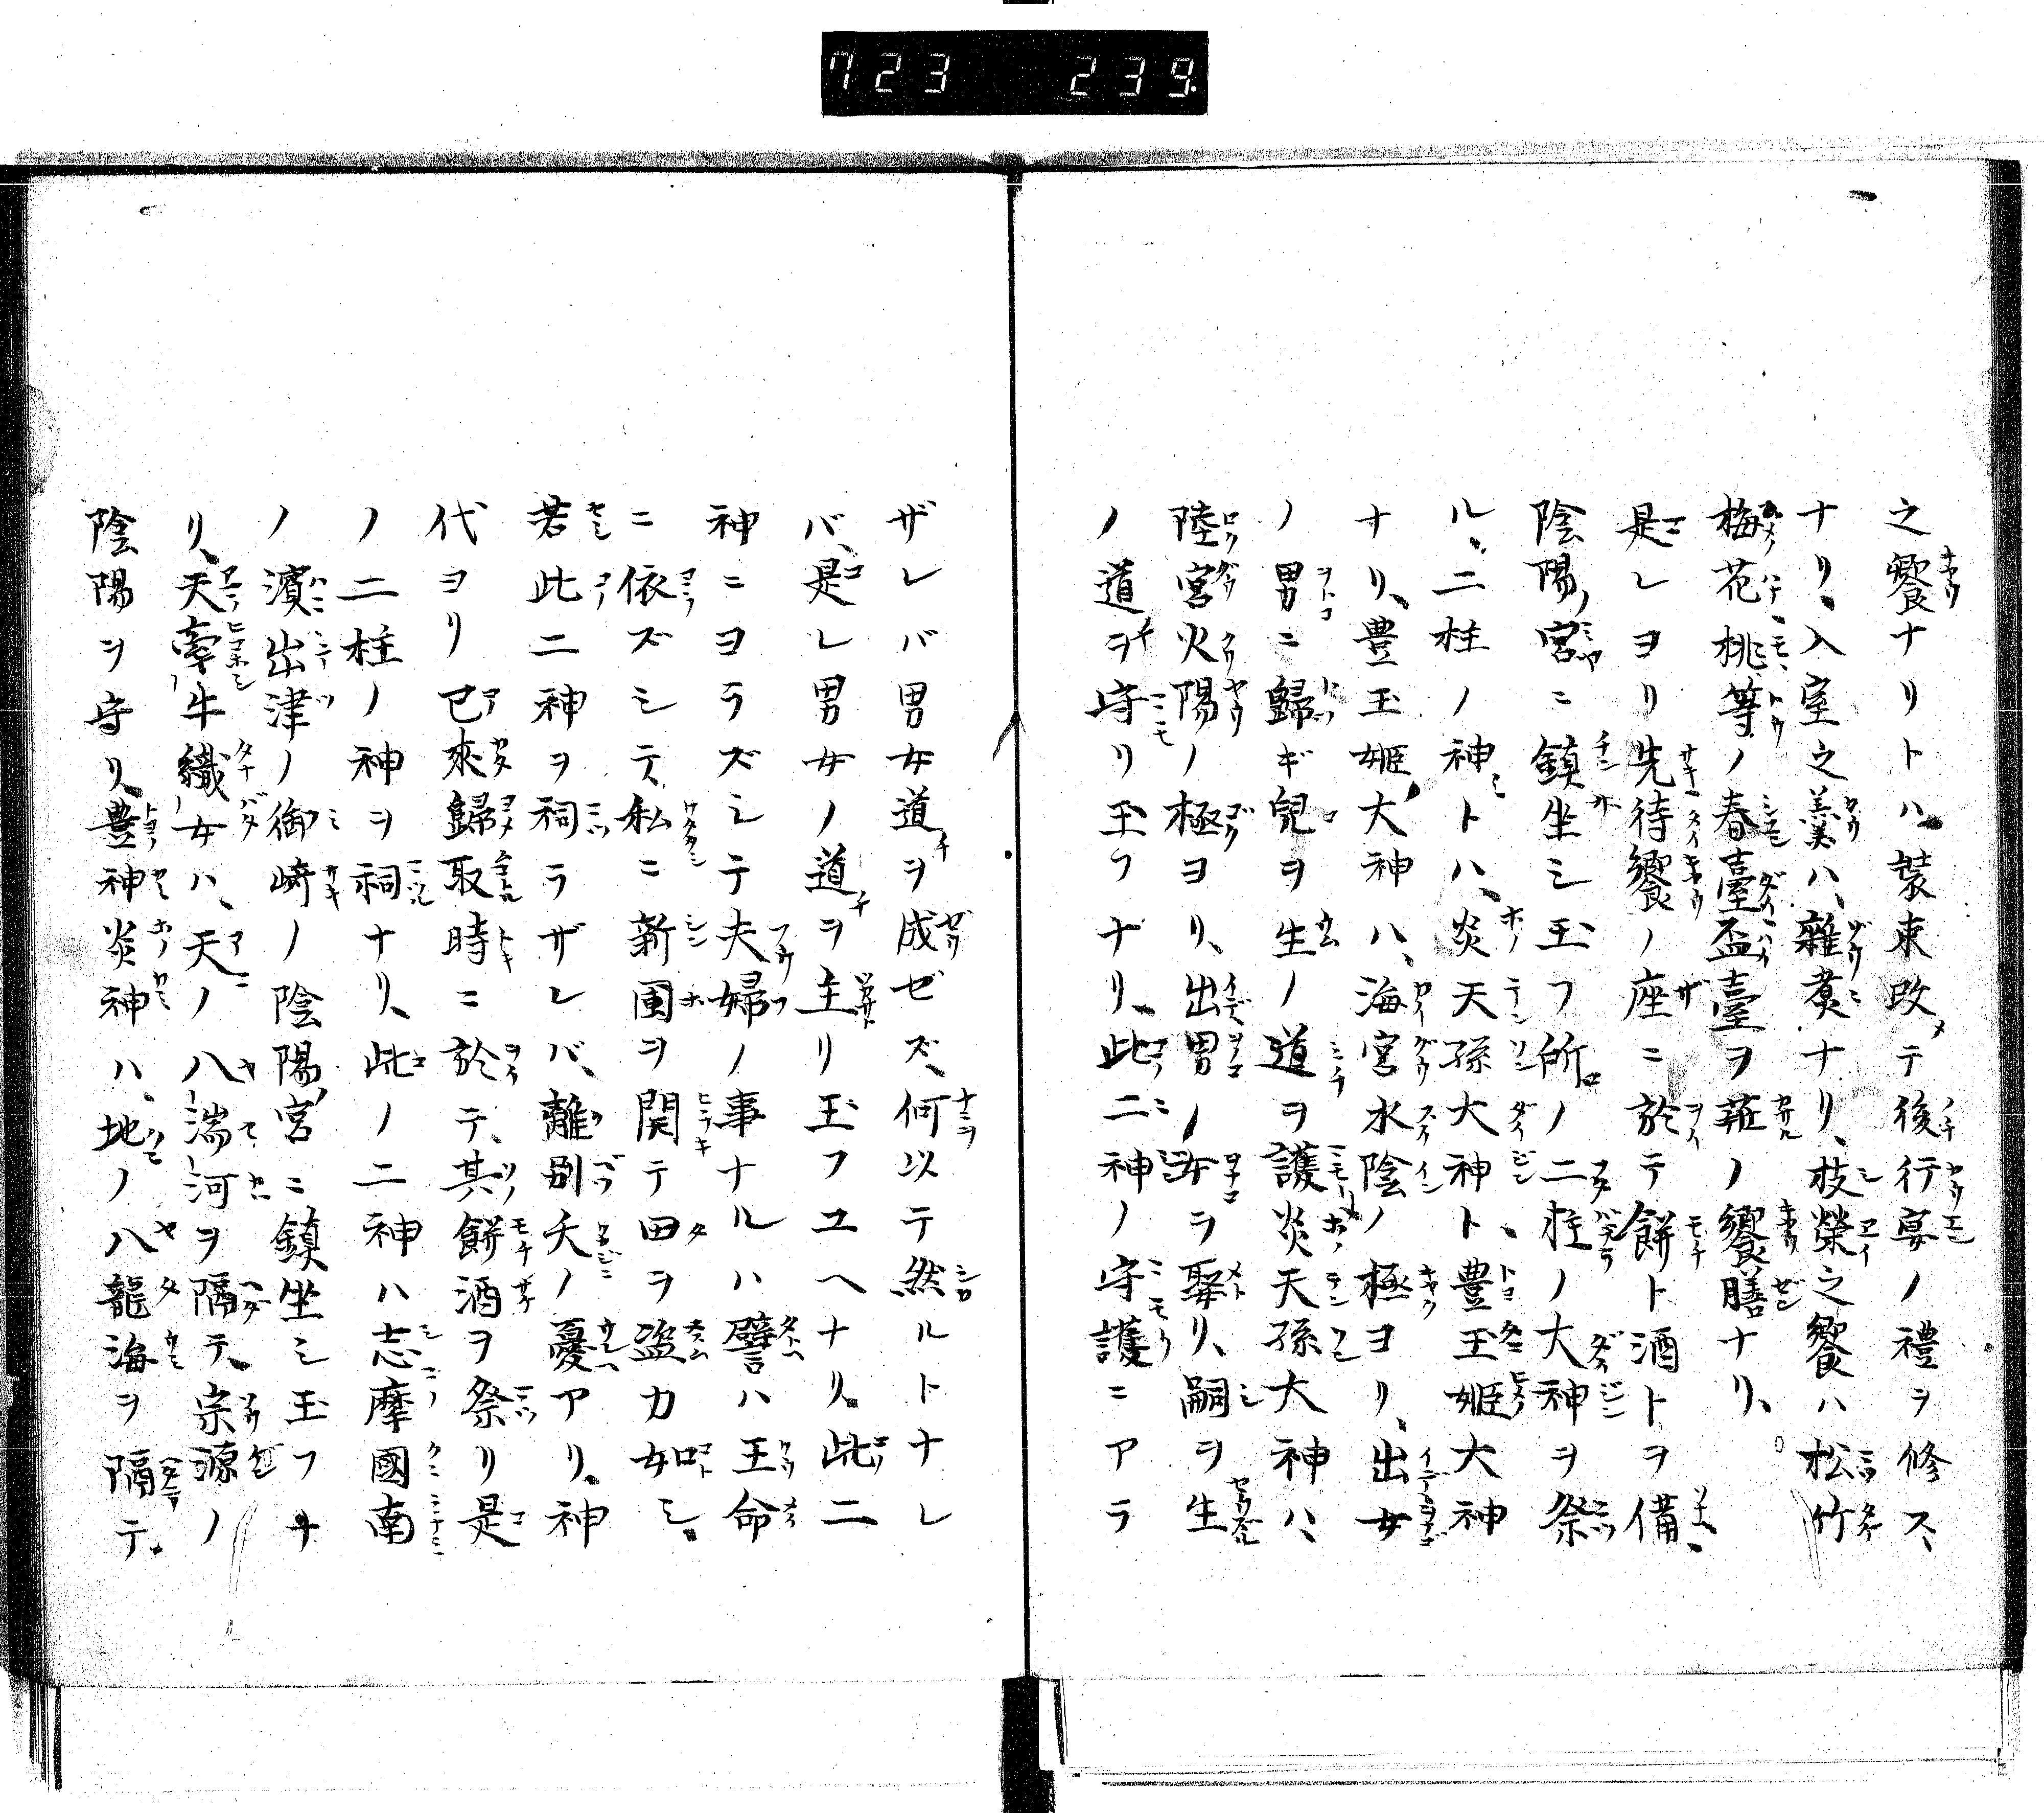 723 239.
之饗ナリトハ、裝束改メテ後行宴ノ禮ヲ修ス、
ナリ、入室之羹ハ、雜煑ナリ、枝榮之饗ハ松竹
梅花、桃等ノ春臺盃臺ヲ莊ノ饗膳ナリ、
是レヨリ先待饗ノ座ニ於テ餅ト酒トヲ備、
陰陽ノ宮ニ鎮坐シ玉フ所ノ二柱ノ大神ヲ祭
ル、二柱ノ神トハ、炎天孫大神ト、豊玉姫大神
ナリ、豊玉姫大神ハ、海宮水陰ノ極ヨリ、出女
ノ男ニ歸ギ兒ヲ生ノ道ヲ護、炎天孫大神ハ、
陸宮火陽ノ極ヨリ、出男ノ女ヲ娶リ、嗣ヲ生
ノ道ヲ守リ玉フナリ、此二神ノ守護ニアラ
ザレバ男女道ヲ成ゼズ、何以テ然ルトナレ
バ、是レ男女ノ道ヲ主リ玉フユヘナリ、此二
神ニヨラズシテ夫婦ノ事ナルハ譬ハ王命
ニ依ズシテ、私ニ新圃ヲ開テ田ヲ盗カ如シ、
若此二神ヲ祠ラザレバ、離別夭ノ憂アリ、神
代ヨリ已來歸取時ニ於テ、其餅酒ヲ祭リ是
ノ二柱ノ神ヲ祠ナリ、此ノ二神ハ志摩國南
ノ濱出津ノ御崎ノ陰陽ノ宮ニ鎮坐シ玉フナ
リ、天牽牛織女ハ、天ノ八湍河ヲ隔テ、宗源ノ
陰陽ヲ守リ、豊神炎神ハ、地ノ八龍海ヲ隔テ、